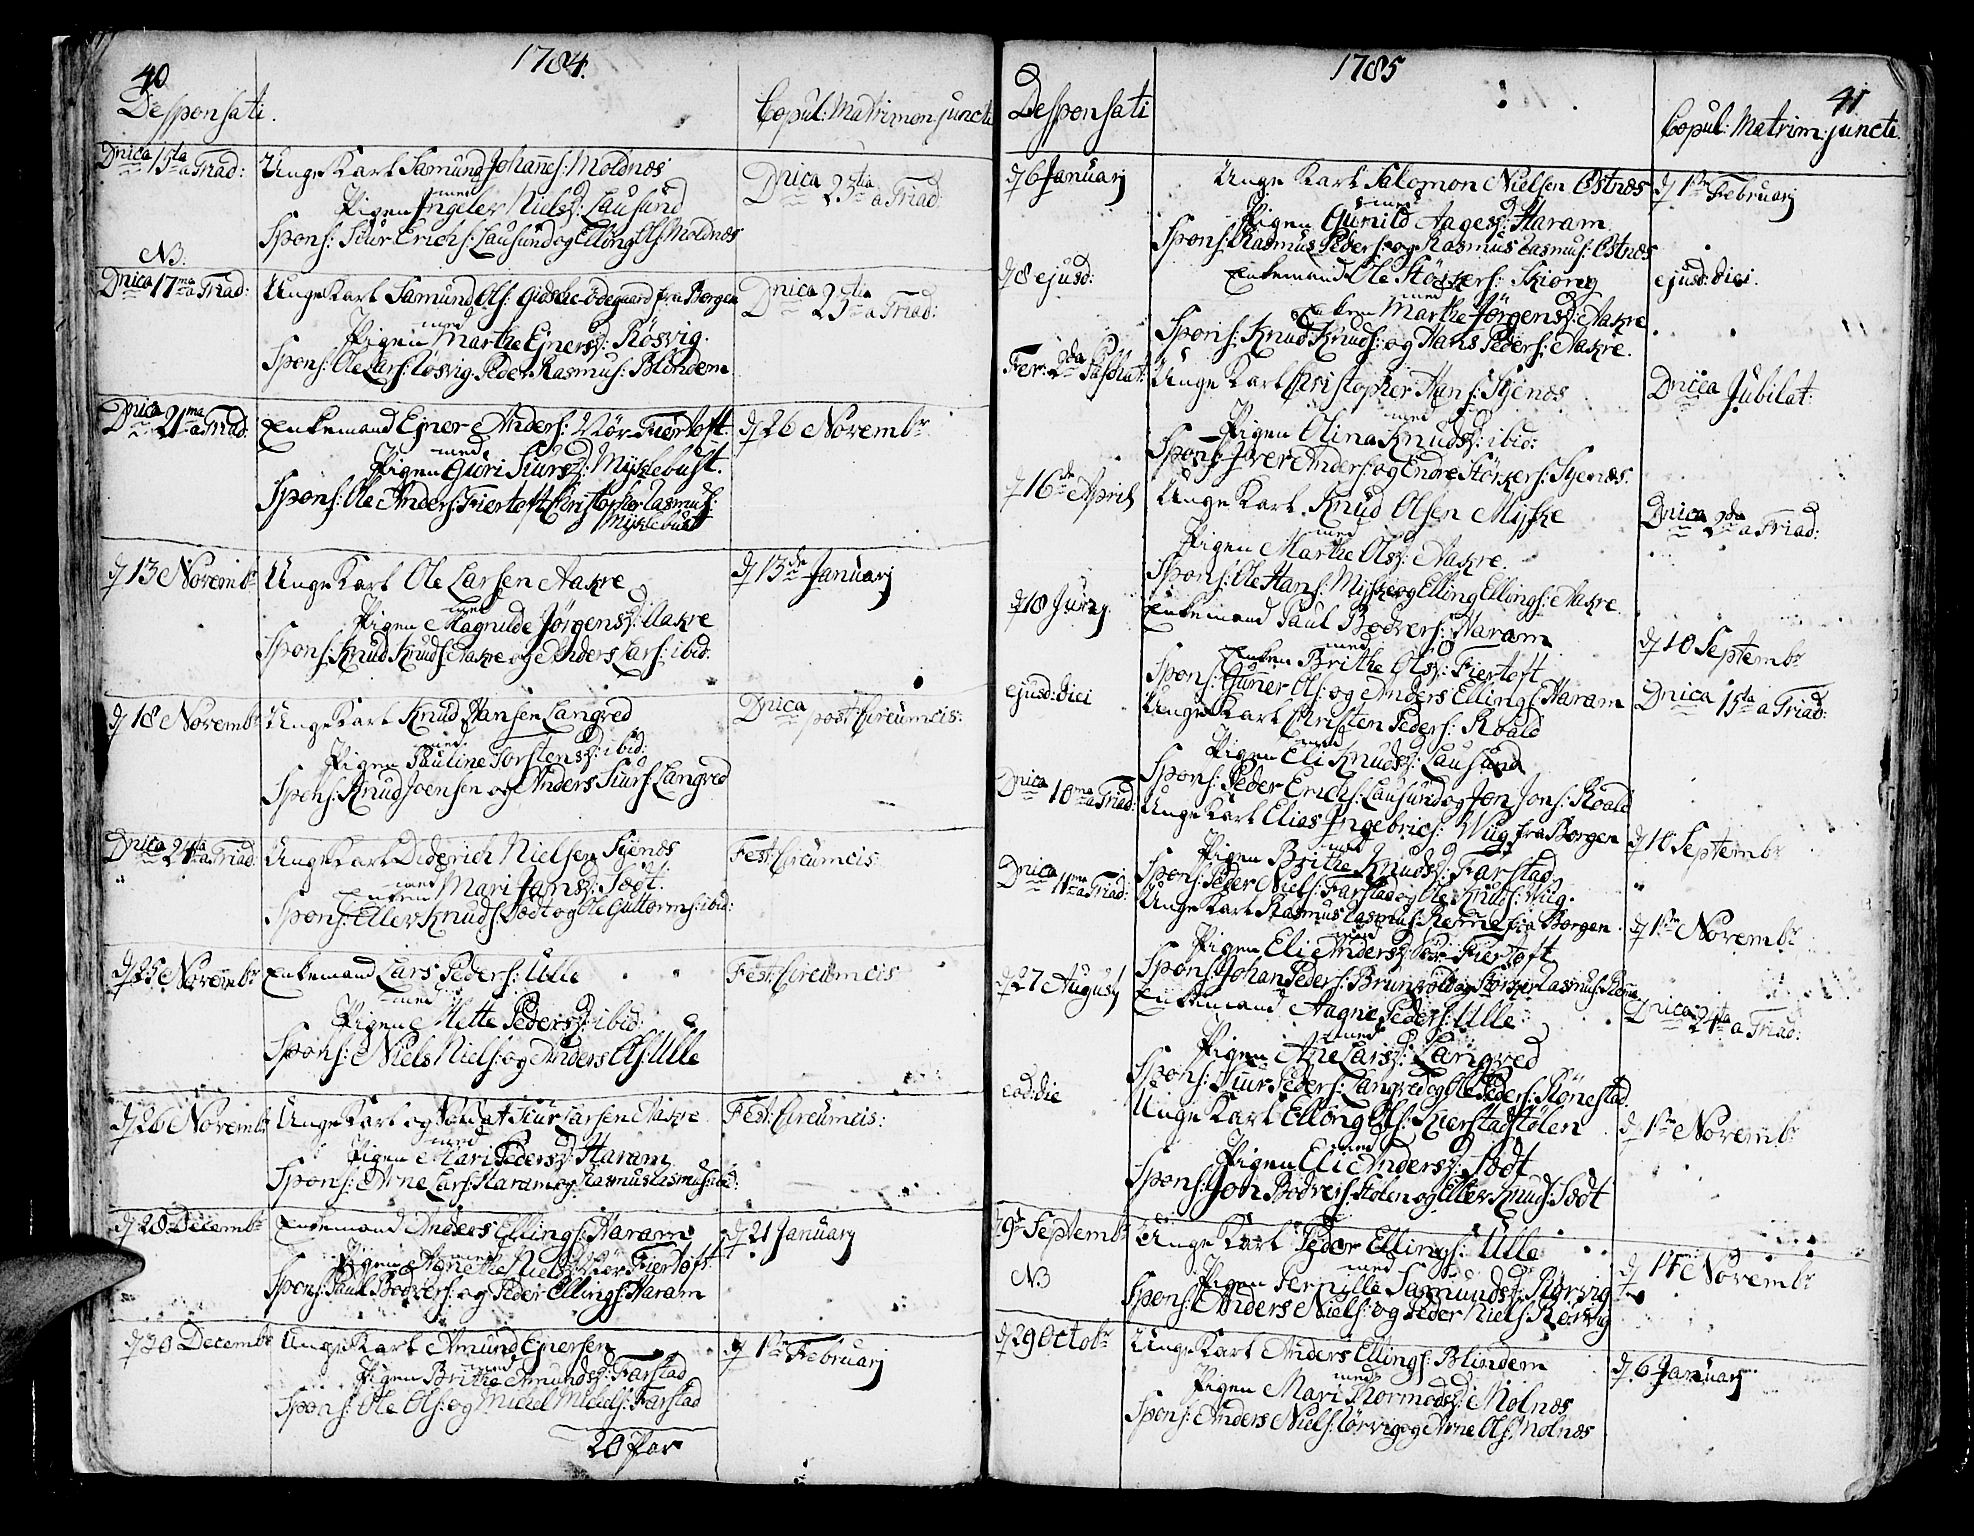 40
1784.
Desponsati.
Copul: Matrimon: juncti
Dnica 15ta a Triad:
Unge Karl Samund Johans: Moldnæs
med
Pigen Ingeler Nielsd: Lausund
Spons: Siur Erichs: Lausund og Elling Ols: Moldnæs
Dnica 23tia a Triad:
NB.
Dnica 17ma a Triad:
Unge Karl Samund Ols: Giøsche-Ødegaard fra Borgen
med
Pigen Marthe Ejnersd: Røsvig.
Spons: Ole Lars: Røsvig. Peder Rasmus: Blindem
Dnica 23tia a Triad:
Dnica 21ma a Triad:
Enkemand Ejner Anders: Nør-Fiertoft
med
Pigen Guri Siursd: Myklebust.
Spons: Ole Anders: Fiertoft Christopher Rasmus:
Myklebust
d 26 Novembr
d 13 Novembr
Unge Karl Ole Larsen Aakre
med
Pigen Magnilde Jørgensd: Aakre
Spons: Knud Knuds: Aakre og Anders Lars: ibid:
d 13de Januarj
d 18 Novembr
Unge Karl Knud Hansen Langved
med
Pigen Pauline Torstensd: ibid:
Spons: Knud Joensen og Anders Siurs: Langved
Dnica post Circumcis:
Dnica 24ta a Triad:
Unge Karl Diderich Nielsen Stjenæs
med
Enken Mari Jansd: Sødt:
Spons: Eller Knuds: Sødt og Ole Guttorms: ibid:
Fest: Circumcis
d 25 Novembr
Enkemand Lars Peders: Ulle
med
Pigen Mette Pedersd: ibid:
Spons: Niels Niels: og Anders Ols: Ulle
Fest: Circumcis
d 26 Novembr
Unge Karl og Soldat Siur Larsen Aakre
med
Pigen Mari Pedersd: Haram
Spons: Arne Lars: Haram og Rasmus Rasmus: ibid:
Fest: Circumcis:
d 28 Decembr
Enkemand Anders Ellings: Haram
med
Pigen Anethe Nielsd: Nør Fiertoft
Spons: Paul Bodvers: og Peder Ellings: Haram
d 21 Januarj
d 30 Decembr
Unge Karl Amund Ejnersen
med
Pigen Brithe Amundsd: Farstad
Spons: Ole Ols: og Michel Michels: Farstad
d 1ste Februarj
20 Par
1785
41
Desponsati
Copul: Matrim: juncti
d 6 Januarj
Unge Karl Salomon Nielsen Østnæs
med
Pigen Gunild Aagesd: Haram
Spons: Rasmus Peders: og Rasmus Rasmus: Østnæs
d 1ste Februarj
d 8 ejusd:
Enkemand Ole Størkers: Skiong
med
Enken Marthe Jørgensd: Aakre
Spons: Knud Knuds: og Hans Peders: Aakre.
ejusd: diei.
Fer: 2da Paschat:
Unge Karl Christopher Hans: Stjenæs
med
Pigen Olina Knudsd: ibid:
Spons: Iver Anders: og Endre Størkers: Stjenæs.
Dnica Jubilat:
d 16de April
Unge Karl Knud Olsen Myske
med
Pigen Marthe Olsd: Aakre.
Spons: Ole Hans: Myske og Elling Ellings: Aakre.
Dnica 2da a Triad:
d 18 Junj
Enkemand Paul Bodvers: Haram
med
Enken Brithe Olsd: Fiertoft
Spons: Guner Ols: og Anders Ellings: Haram
d 10 Septembr
ejusd: diei
Unge Karl Christen Peders: Roald
med
Pigen Eli Knudsd: Lausund
Spons: Peder Erichs: Lausund og Jon Jons: Roald
Dnica 15ta a Triad:
Dnica 10ma a Triad:
Unge Karl Elias Ingebrigs: Wiig fra Borgen
med
Pigen Brithe Knudsd: Farstad
Spons: Peder Niels: Farstad og Ole Knuds: Wiig.
d 18 Septembr
Dnica 11ma a Triad:
Unge Karl Rasmus Rasmus: Rønne fra Borgen
med
Pigen Eli Andersd: Sør-Fiertoft
Spons: Johan Peders: Brunvold og Størker Rasmus: Rønne
d 1ste Novembr
d 27 Augustj
Enkemand Aagne Peders: Ulle
med
Pigen Ane Larsd: Langved
Spons: Siur Peders: Langved og Ole Peders: Rønestad
Dnica 24ta a Triad:
eod: die
Unge Karl Elling Ols: Kierstad Stølen
med
Pigen Eli Andersd: Sødt
Spons: Jon Bodvers: Stølen og Eller Knuds: Sødt
d 1ste Novembr
d 9de Septembr
Unge Karl Peder Ellings: Ulle
med
Pigen Pernille Samundsd: Rørvig
Spons: Anders Niels: og Peder Niels: Rørvig
d 14 Novembr
NB
d 29 Octobr
Unge Karl Anders Ellings: Blindem
med
Pigen Mari Thormodsd: Molnæs
Spons: Anders Niels: Rørvig og Arne Ols: Molnæs
d 6 Januarj